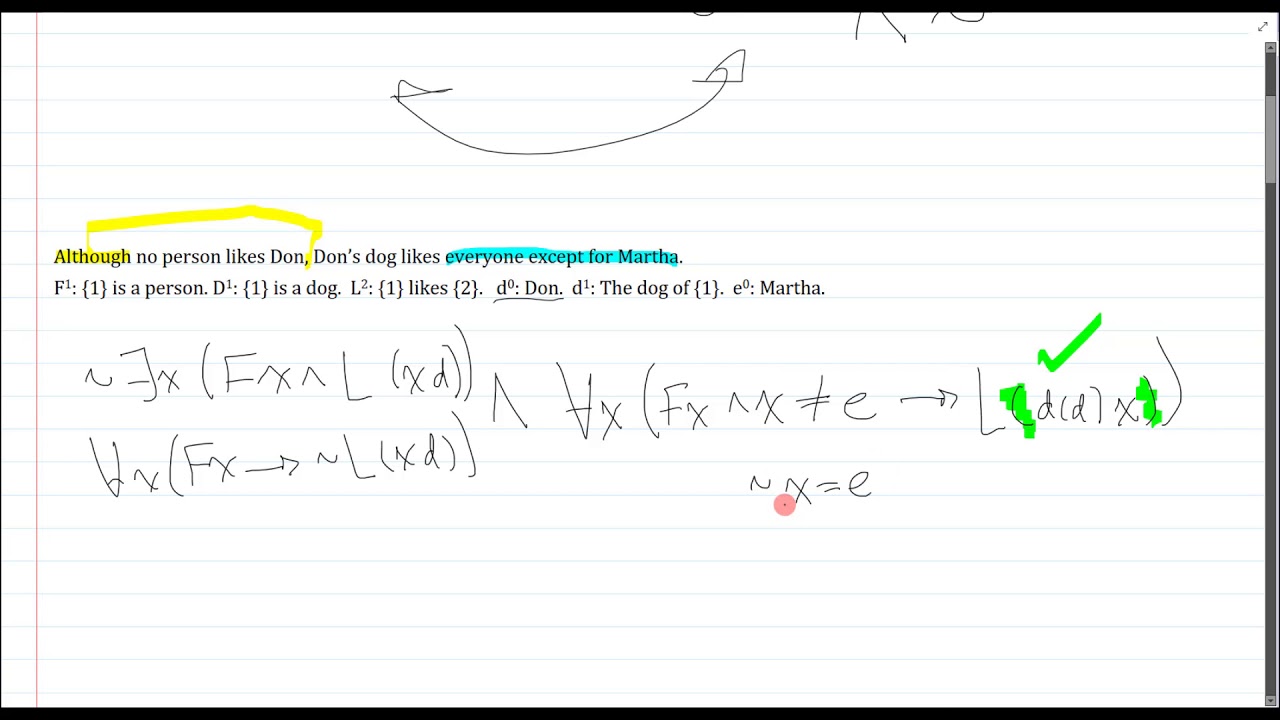 Although no person likes Don, Don's dog likes everyone except for Martha.
F¹: {1} is a person. D¹: {1} is a dog. L²: {1} likes {2}. d⁰: Don. d¹: The dog of {1}. e⁰: Martha.
~∃x(Fx∧L(xd)) ∧ ∀x(Fx∧x≠e→L(d(d)x))
∀x(Fx→~L(xd))
~x=e